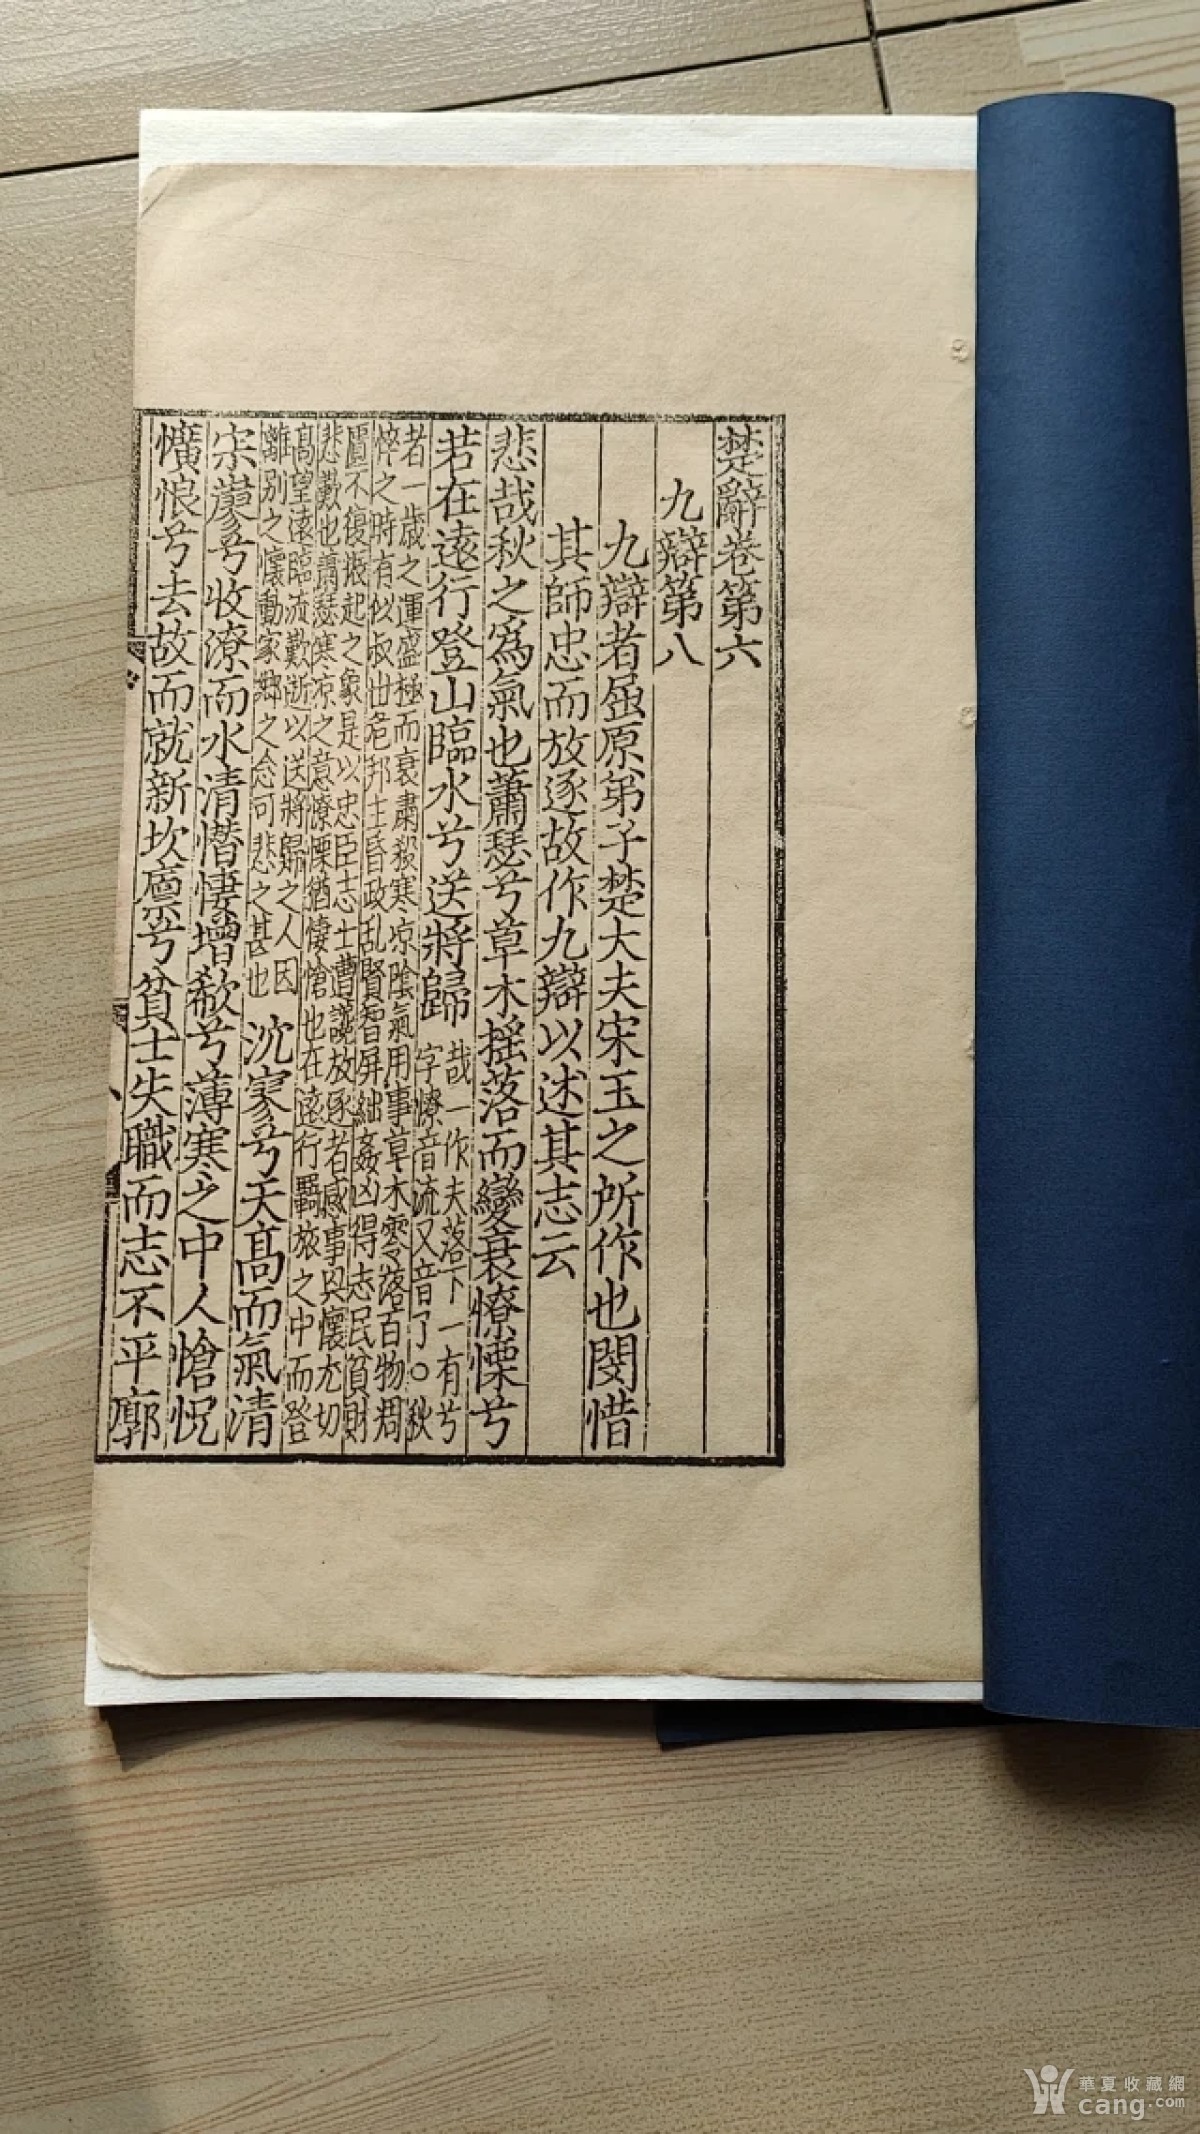 楚辭卷第六
九辯第八
九辯者屈原弟子楚大夫宋玉之所作也閔惜
其師忠而放逐故作九辯以述其志云
悲哉秋之爲氣也蕭瑟兮草木搖落而變衰憭慄兮
若在遠行登山臨水兮送將歸
哉一作夫落下一有兮
字憭音流又音了○秋
者一歲之運盛極而衰肅殺寒凉陰氣用事草木零落百物凋
悴之時有似叔世危邦主昏政亂賢智屏絀姦凶得志民貧財
匱不復振起之象是以忠臣志士遭讒放逐者感事興懷尤切
悲歎也蕭瑟寒凉之意憭慄猶悽愴也在遠行羈旅之中而登
高望遠臨流歎逝以送將歸之人因
離別之懷動家鄉之念可悲之甚也
泬寥兮天高而氣清
宗嵺兮收潦而水清憯悽增欷兮薄寒之中人愴怳
懭悢兮去故而就新坎廩兮貧士失職而志不平廓
華夏收藏網
cang.com